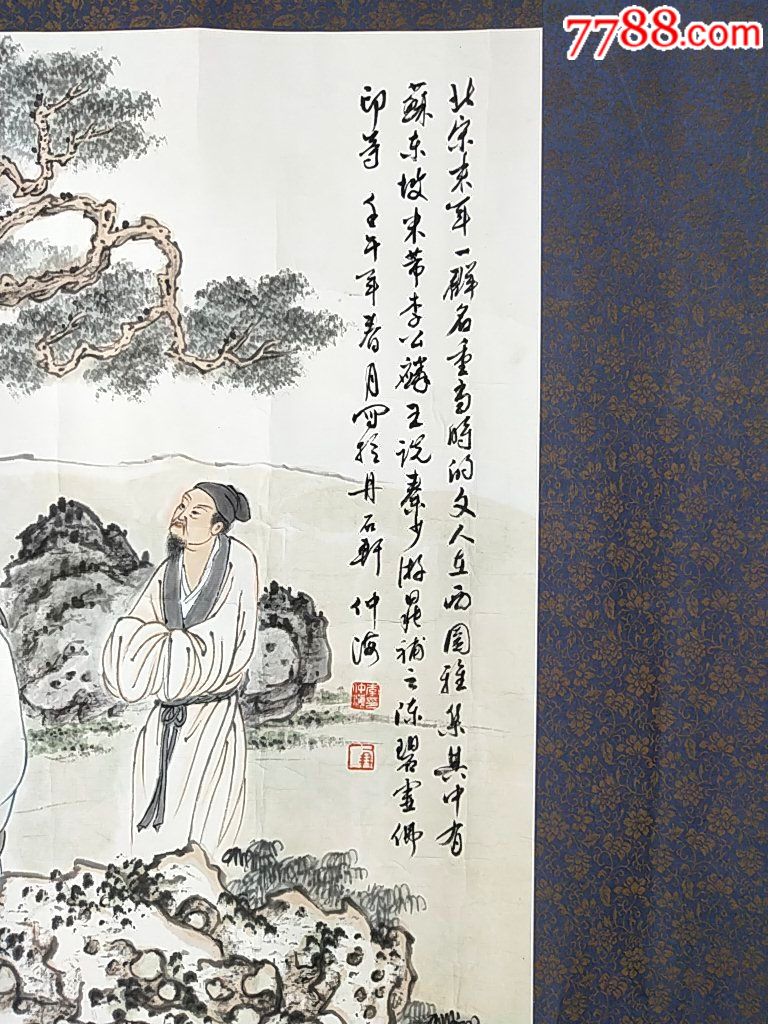 7788.com
北宋末年一群名重当時的文人在西园雅集其中有
蘇东坡米芾李公麟王说秦少游晁補之陈碧虚佛
印等 壬午年春月写於丹石軒 仲海